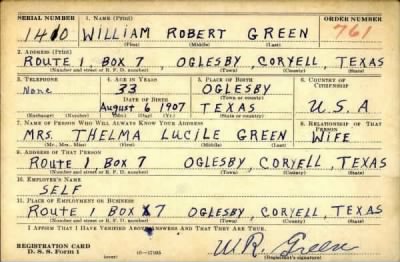 SERIAL NUMBER 1. NAME (Print) ORDER NUMBER
1410 WILLIAM ROBERT GREEN 761
(First) (Middle) (Last)
2. ADDRESS (Print)
ROUTE 1, BOX 7, OGLESBY, CORYELL, TEXAS
(Number and street or R. F. D. number) (Town) (County) (State)
3. TELEPHONE 4. AGE IN YEARS 5. PLACE OF BIRTH 6. COUNTRY OF CITIZENSHIP
None 33 OGLESBY
DATE OF BIRTH (Town or county)
August 6 1907 TEXAS U.S.A
(Exchange) (Number) (Mo.) (Day) (Yr.) (State or country)
7. NAME OF PERSON WHO WILL ALWAYS KNOW YOUR ADDRESS 8. RELATIONSHIP OF THAT PERSON
MRS. THELMA LUCILE GREEN WIFE
(Mr., Mrs., Miss) (First) (Middle) (Last)
9. ADDRESS OF THAT PERSON
ROUTE 1, BOX 7 OGLESBY, CORYELL, TEXAS
(Number and street or R. F. D. number) (Town) (County) (State)
10. EMPLOYER'S NAME
SELF
11. PLACE OF EMPLOYMENT OR BUSINESS
ROUTE 1 BOX 7 OGLESBY, CORYELL, TEXAS
(Number and street or R. F. D. number) (Town) (County) (State)
I AFFIRM THAT I HAVE VERIFIED ABOVE ANSWERS AND THAT THEY ARE TRUE.
W.R. Green
REGISTRATION CARD
D. S. S. Form 1 (over) (Registrant's signature)